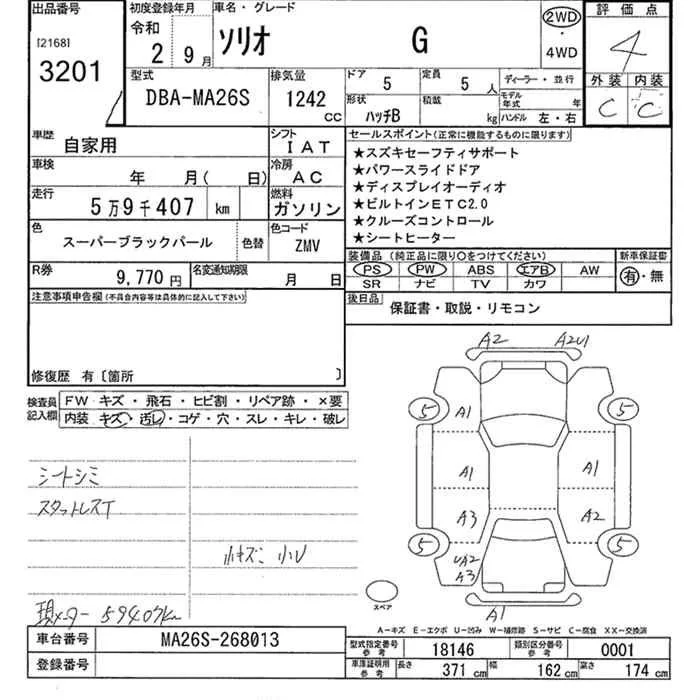 出品番号
[2168]
3201
初度登録年月
令和
2年 9月
車名・グレード
ソリオ G
2WD
・
4WD
評価点
4
外装 内装
C C
型式
DBA-MA26S
排気量
1242
CC
ドア
5
定員
5人
形状
ハッチB
積載
kg
ディーラー・並行
モデル年式 年
ハンドル 左・右
車歴
自家用
シフト
IAT
車検
年 月( 日)
冷房
AC
走行
5万9千407 km
燃料
ガソリン
色
スーパーブラックパール
色替
色コード
ZMV
R券
9,770円
名変通知期限
月 日
セールスポイント(正常に機能するものに限ります)
★スズキセーフティサポート
★パワースライドドア
★ディスプレイオーディオ
★ビルトインETC2.0
★クルーズコントロール
★シートヒーター
装備品 (純正品に限り○をつけてください)
PS PW ABS エアB AW
SR ナビ TV カワ
新車保証書
有・無
後日品
保証書・取説・リモコン
注意事項申告欄(不具合内容等は具体的に記入して下さい)
修復歴 有〔箇所 〕
検査員記入欄
FW キズ・飛石・ヒビ割・リペア跡・×要
内装 キズ・汚レ・コゲ・穴・スレ・キレ・破レ
シートシミ
スタットレスT
小キズ、小U
現メーター 59407km
A2 A2U1
5 A1 5
A1 A1
A3 A2
5 UA2 5
A3
A1
スペア
A−キズ E−エクボ U−凹み W−補修跡 S−サビ C−腐食 XX−交換済
車台番号
MA26S-268013
登録番号
型式指定番号
参考
18146
類別区分番号
参考
0001
車庫証明用
参考
長さ 371 cm 幅 162 cm 高さ 174 cm